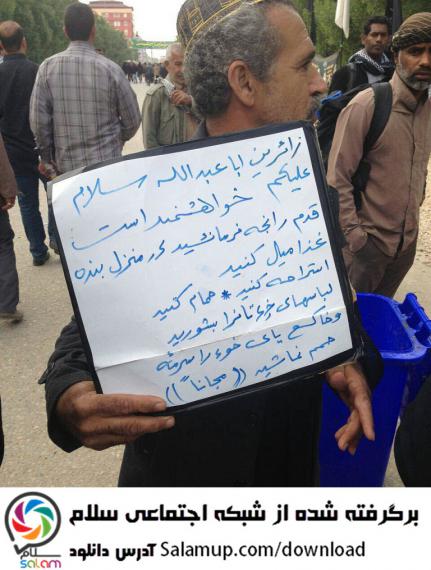 زائرین ابا عبدالله سلام
علیکم خواهشمند است
قدم رانجه فرمائید در منزل بنده
غذا میل کنید
استراحه کنید * حمام کنید
لباسهای خودتانرا بشورید
وخاک پای خود را سرمه
چشم نمائید ((مجاناً))
برگرفته شده از شبکه اجتماعی سلام
آدرس دانلود Salamup.com/download
سلام
salam